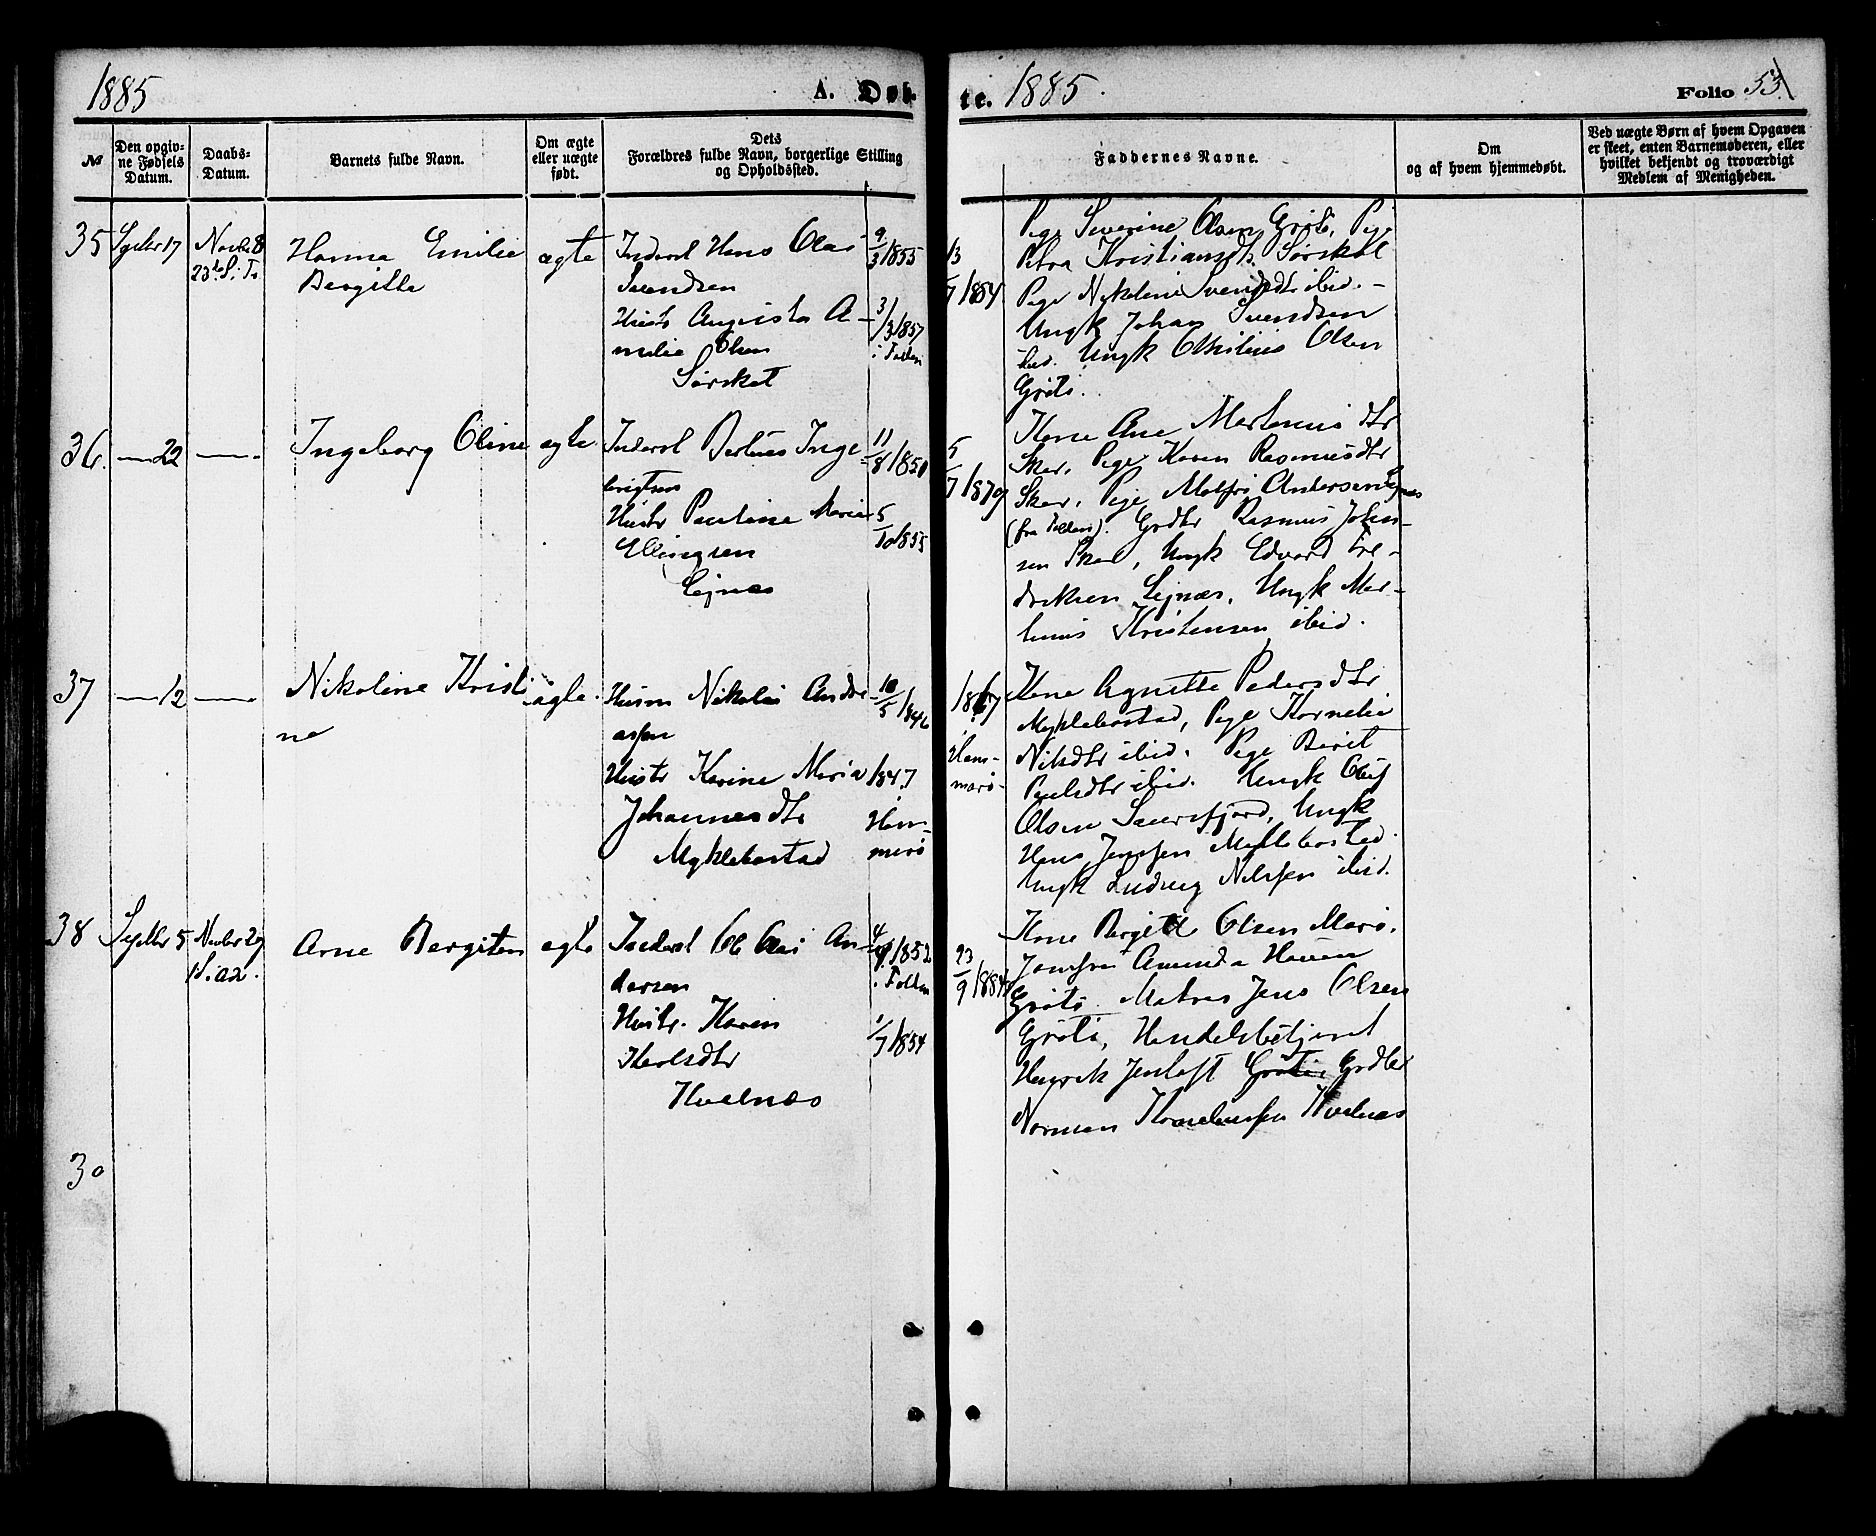 1885
A. Døb-
te. 1885.
Folio 53
№
Den opgiv-
ne Fødsels
Datum.
Daabs-
Datum.
Barnets fulde Navn.
Om ægte
eller uægte
født.
Dets
Forældres fulde Navn, borgerlige Stilling
og Opholdssted.
Faddernes Navne.
Om
og af hvem hjemmedøbt.
Ved uægte Børn af hvem Opgaven
er skeet, enten Barnemoderen, eller
hvilket bekjendt og troværdigt
Medlem af Menigheden.
35
Septbr 17
Novbr 8
23de S. Tr
Hanna Emilie
Bergitte
ægte
Inderst Hans Olai
Svendsen
Hustr Augusta A-
malie Olsen
Sørskot
9/3 1855
3/3 1857
i Folden
13/7 1884
Pige Severine Olsen Grøtø, Pige
Petra Kristiansdtr. Sørskot
Pige Nikoline Svendsdtr ibid. -
Ungk Johan Svendsen
ibid. Ungk Olsen
Grøtø.
36.
— 22
—
Ingeborg Oline
ægte
Inderst Bertеus Inge-
brigtsen
Hustr Pauline Marie
Ellingsen
Lejnæs
11/8 1850
5/10 1855
5/7 1879
Kone Ane Martinusdtr
Skar, Pige Karen Rasmusdtr
Skar, Pige Andersen Lejnæs
(fra Folden). Grdbr Rasmus Johan-
sen Skar, Ungk Edvard Fre-
driksen Lejnæs, Ungk Mar-
tinus Kristensen ibid.
37
— 12
—
Nikoline Kristi
ne
ægte.
Husm Nikolai Andre
assen
Hustr Karine Maria
Johannesdtr
Myklebostad
10/5 1846
1847
i
Ham-
merø
1867
i
Ham-
marø
Kone Agnette Pedersdtr
Myklebostad, Pige Kornelie
Nilsdtr ibid. Pige Berit
Paulsdtr ibid. Ungk Oluf
Olsen Sauersfjord, Ungk
Hans Jenssen Myklebostad
Ungk Ludvig Nilssen ibid.
38
Septbr 5
Novbr 29
1 S. a.
Arne Bergiton
ægte
Inderst Ole Olai An-
dersen
Hustr. Karen
Karlsdtr
Hvelnæs
1852
i Folden
1/7 1854
23/9
Kone Bergitte Olsen Marø.
Jomfru Amunda Hansen
Grøtø. Matros Jens Olsen
Grøtø, Handelsbetjent
Henrik Jentoft Grøtø, Grdbr
Norman Korneliussen Hvelnæs
30